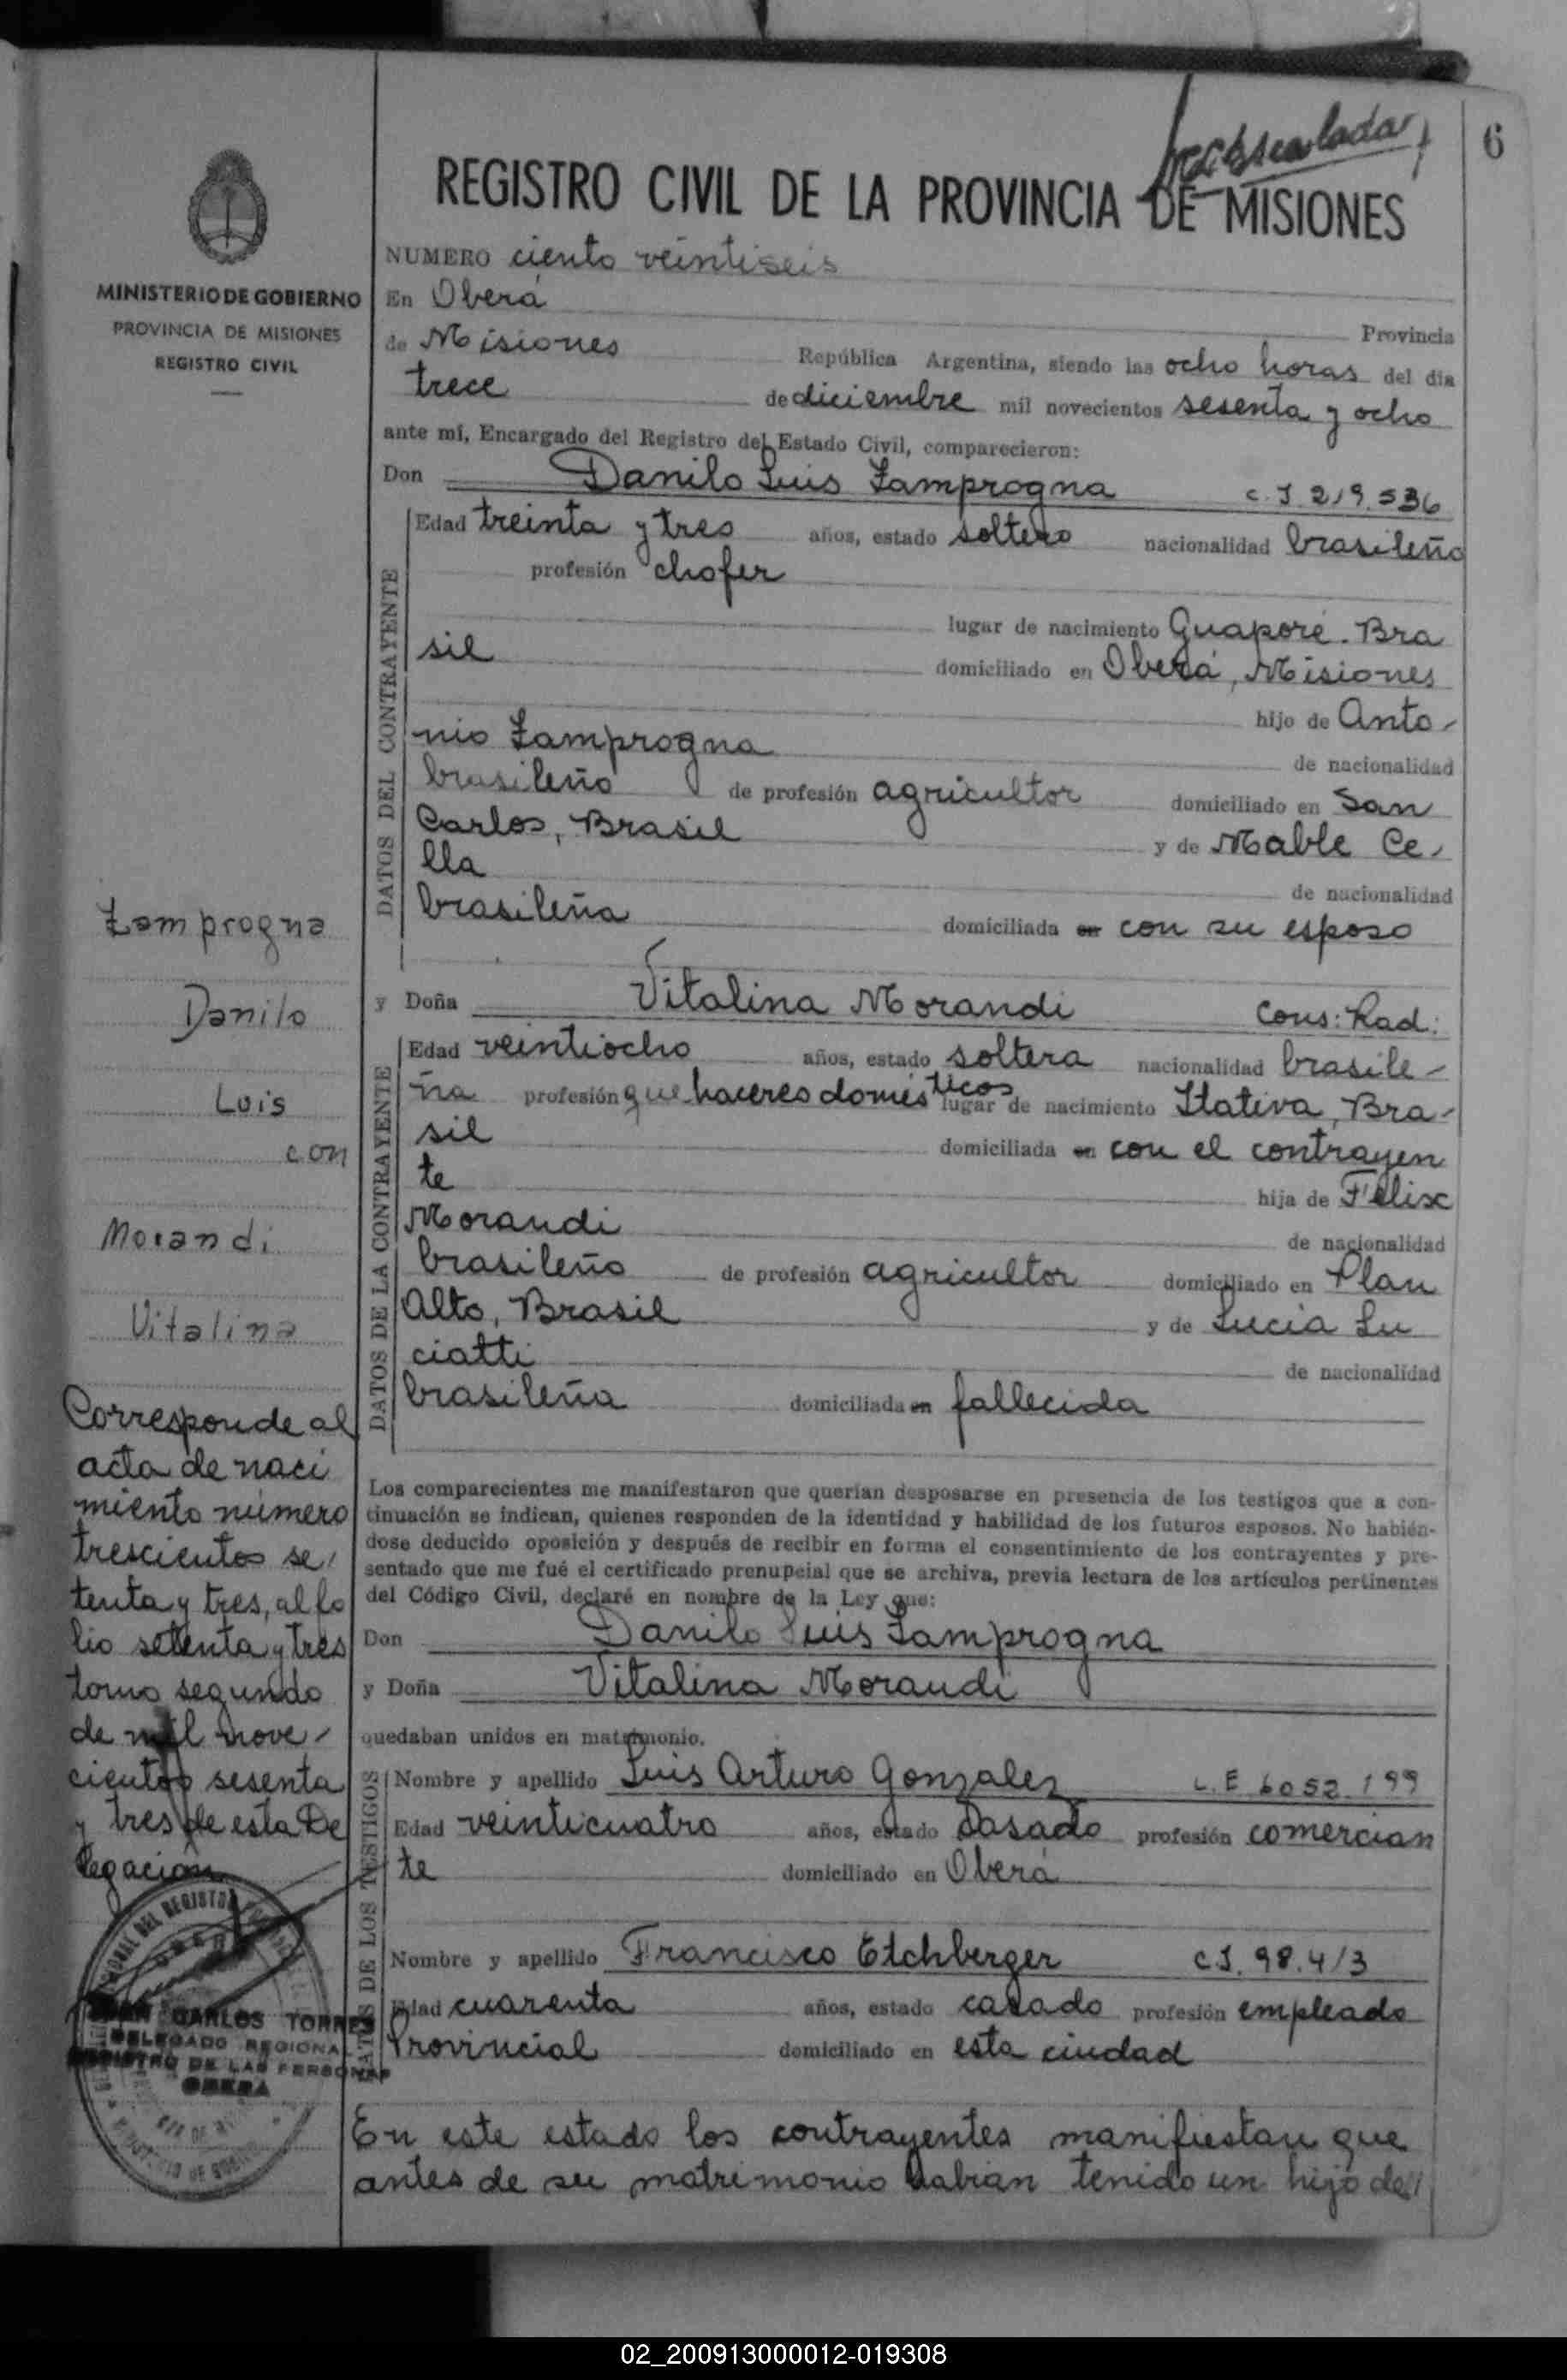 6
REGISTRO CIVIL DE LA PROVINCIA DE MISIONES
MINISTERIO DE GOBIERNO
PROVINCIA DE MISIONES
REGISTRO CIVIL
NUMERO ciento veintiseis
En Oberá
Provincia
de Misiones República Argentina, siendo las ocho horas del día
trece de diciembre mil novecientos sesenta y ocho
ante mí, Encargado del Registro del Estado Civil, comparecieron:
Don Danilo Luis Zamprogna C.I 219.536
DATOS DEL CONTRAYENTE
Edad treinta y tres años, estado soltero nacionalidad brasileño
profesión chofer
lugar de nacimiento Guaporé - Bra
sil domiciliado en Oberá, Misiones
hijo de Anto-
nio Zamprogna de nacionalidad
brasileño de profesión agricultor domiciliado en San
Carlos, Brasil y de Mable Ce-
lla de nacionalidad
brasileña domiciliada en con su esposo
y Doña Vitalina Morandi Cons: Rad:
DATOS DE LA CONTRAYENTE
Edad veintiocho años, estado soltera nacionalidad brasile-
ña profesión quehaceres domésticos lugar de nacimiento Itativa, Bra-
sil domiciliada en con el contrayen
te hija de Félix
Morandi de nacionalidad
brasileño de profesión agricultor domiciliado en Plan
Alto, Brasil y de Lucia Lu
ciatti de nacionalidad
brasileña domiciliada en fallecida
Los comparecientes me manifestaron que querían desposarse en presencia de los testigos que a con-
tinuación se indican, quienes responden de la identidad y habilidad de los futuros esposos. No habién-
dose deducido oposición y después de recibir en forma el consentimiento de los contrayentes y pre-
sentado que me fué el certificado prenupcial que se archiva, previa lectura de los artículos pertinentes
del Código Civil, declaré en nombre de la Ley que:
Don Danilo Luis Zamprogna
y Doña Vitalina Morandi
quedaban unidos en matrimonio.
DATOS DE LOS TESTIGOS
Nombre y apellido Luis Arturo Gonzalez L.E 6052.199
Edad veinticuatro años, estado casado profesión comercian
te domiciliado en Oberá
Nombre y apellido Francisco Etchberger C.I. 98.413
Edad cuarenta años, estado casado profesión empleado
Provincial domiciliado en esta ciudad
En este estado los contrayentes manifiestan que
antes de su matrimonio habian tenido un hijo de
Zamprogna
Danilo
Luis
con
Morandi
Vitalina
Corresponde al
acta de naci
miento número
trescientos se-
tenta y tres, al fo
lio setenta y tres
tomo segundo
de mil nove-
cientos sesenta
y tres de esta De
legación
JUAN CARLOS TORRES
DELEGADO REGIONAL
REGISTRO DE LAS PERSONAS
OBERA
02_200913000012-019308